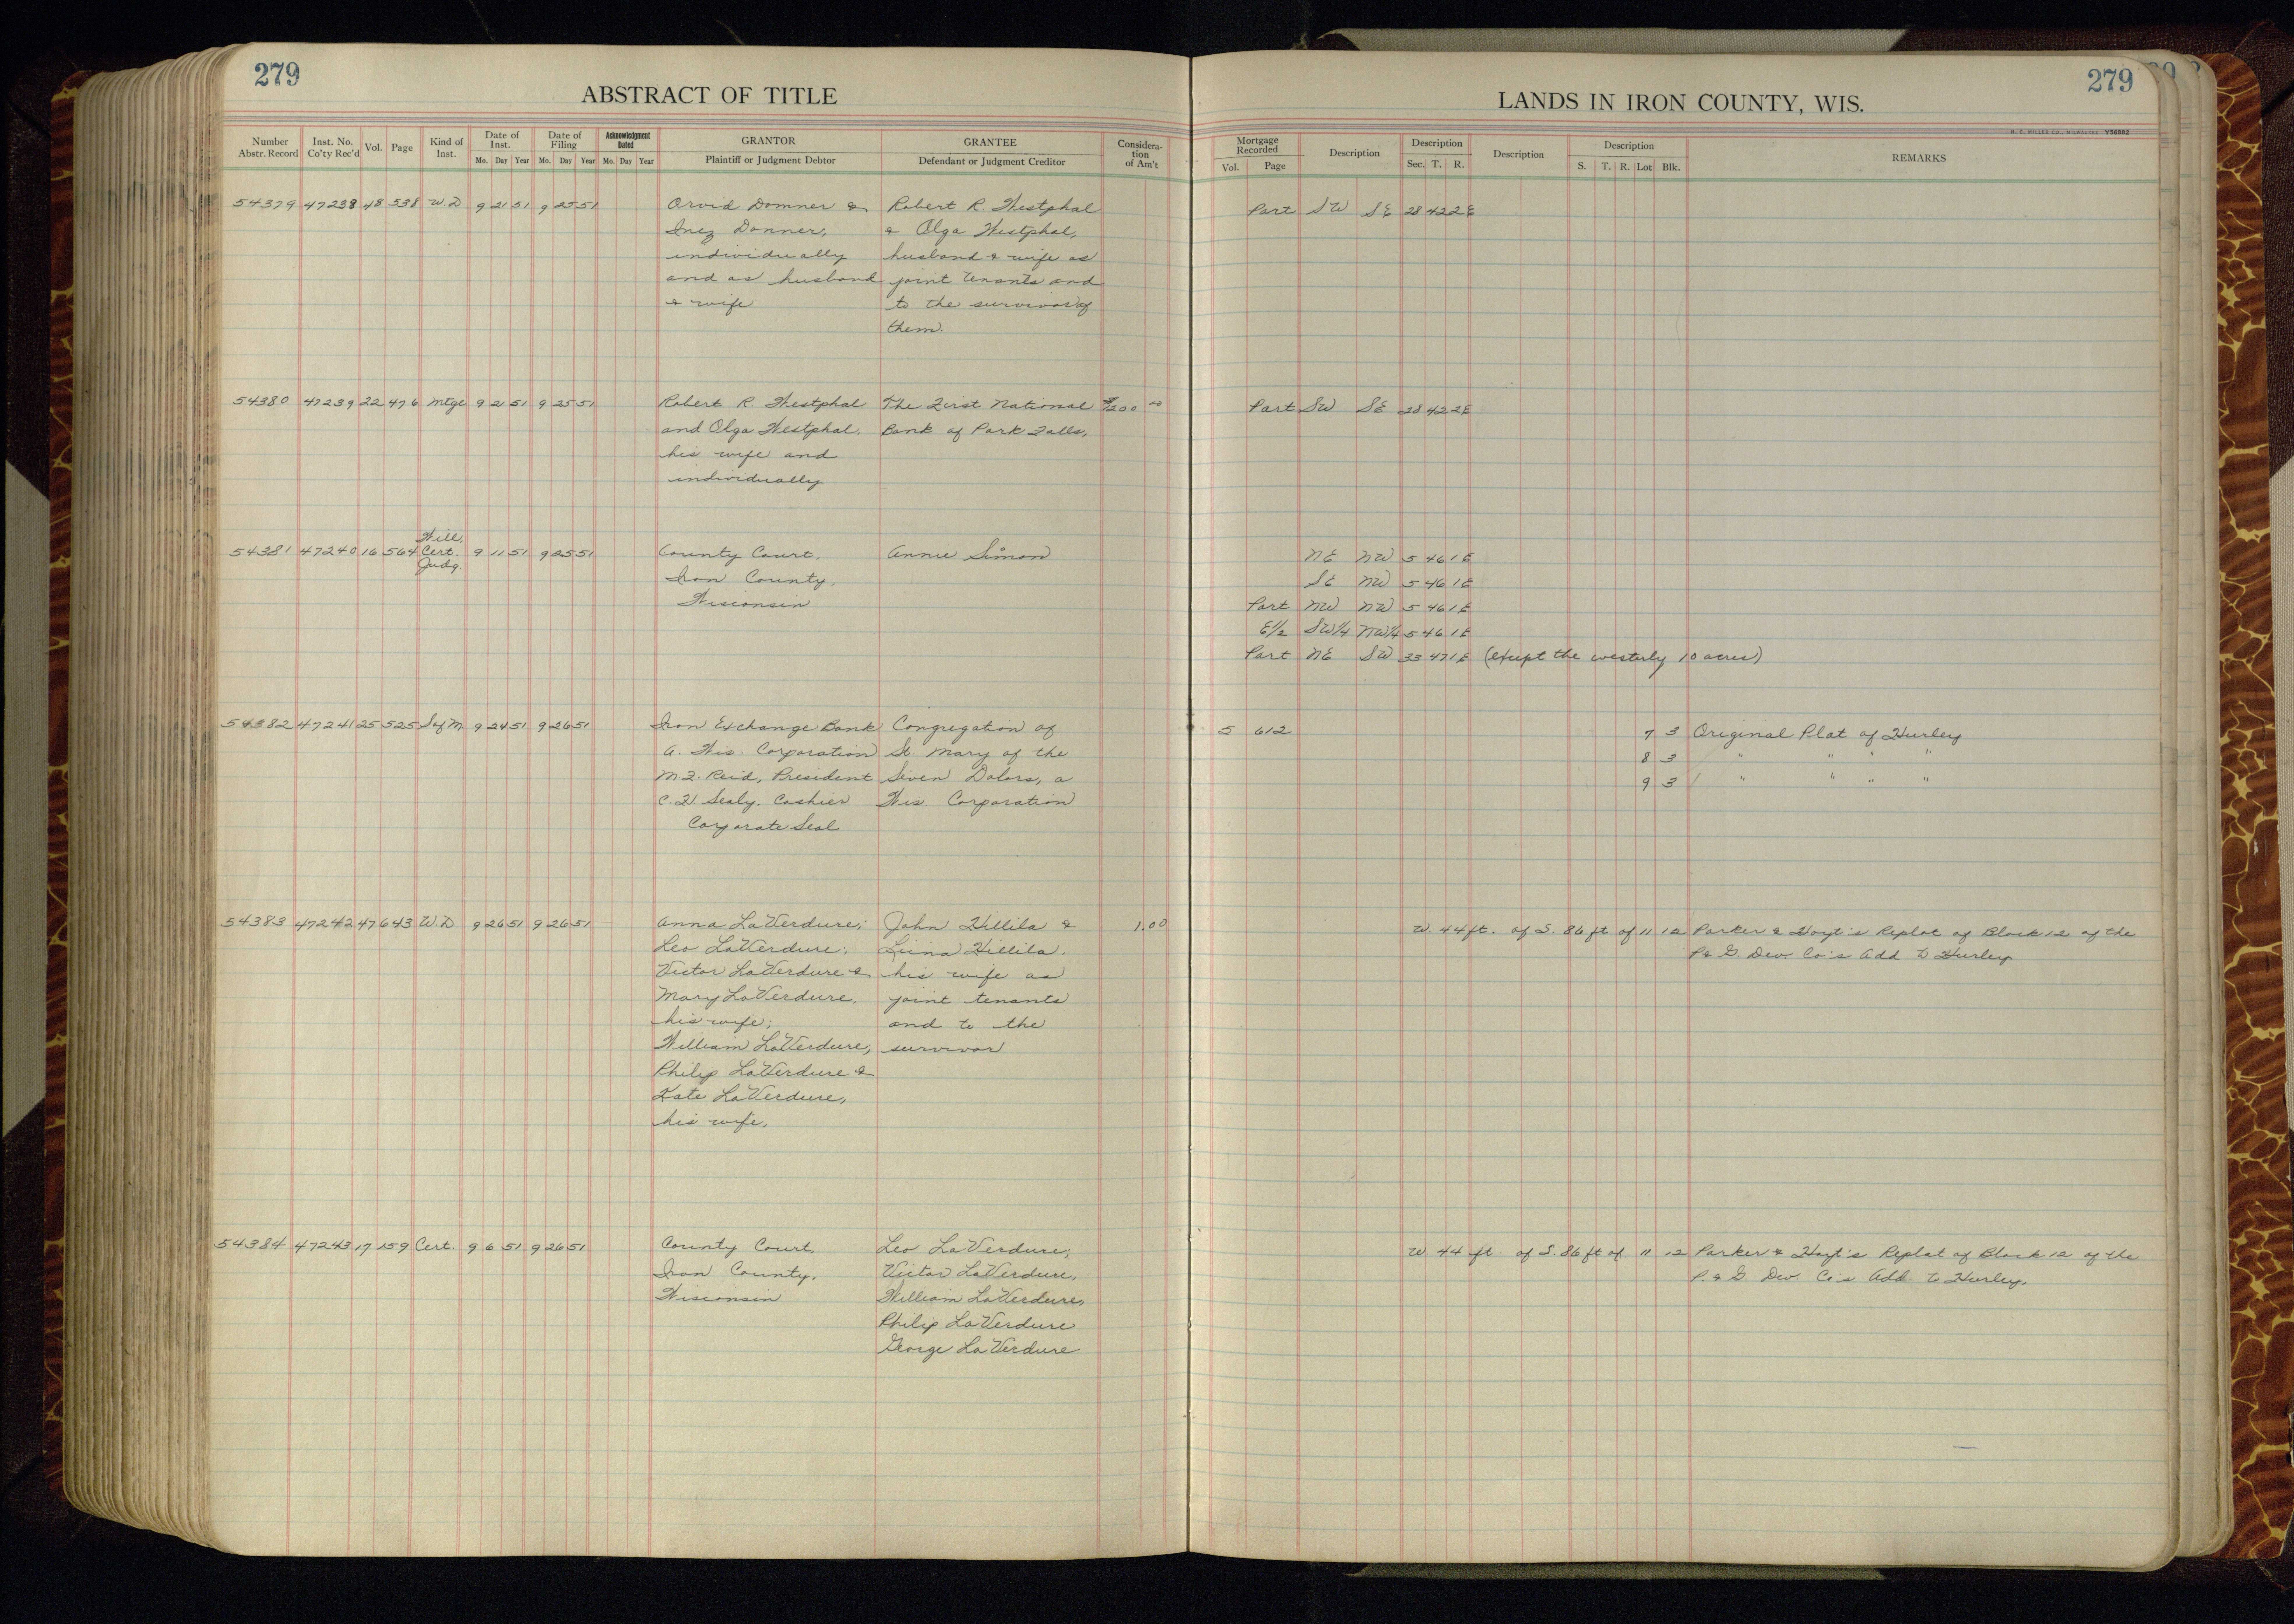 279
ABSTRACT OF TITLE
Number Abstr. Record Inst. No. Co'ty Rec'd Vol. Page Kind of Inst. Date of Inst. Mo. Day Year Date of Filing Mo. Day Year Acknowledgment Dated Mo. Day Year GRANTOR Plaintiff or Judgment Debtor GRANTEE Defendant or Judgment Creditor Consideration of Am't
54379 47238 48 538 W D 9 21 51 9 25 51 Orvid Domner & Robert R. Westphal
Inez Donner, & Olga Westphal,
individually husband & wife as
and as husband joint tenants and
& wife to the survivor of
them.
54380 47239 22 476 Mtge 9 21 51 9 25 51 Robert R. Westphal The First National $1200 00
and Olga Westphal, Bank of Park Falls,
his wife and
individually
Will
54381 47240 16 564 Cert. 9 11 51 9 25 51 County Court, Annie Simon
Judg.
Iron County,
Wisconsin
54382 47241 25 525 Sq M 9 24 51 9 26 51 Iron Exchange Bank Congregation of
A. Wis. Corporation St. Mary of the
M.F. Reid, President Seven Dolors, a
C.F. Sealy, Cashier Wis. Corporation
Corporate Seal
54383 47242 47 643 W.D 9 26 51 9 26 51 Anna LaVerdure; John Hillila & 1.00
Leo LaVerdure; Liina Hillila,
Victor LaVerdure & his wife as
Mary LaVerdure, joint tenants
his wife; and to the
William LaVerdure, survivor
Philip LaVerdure &
Kate LaVerdure,
his wife.
54384 47243 17 159 Cert. 9 6 51 9 26 51 County Court, Leo LaVerdure,
Iron County, Victor LaVerdure,
Wisconsin William LaVerdure,
Philip LaVerdure
George LaVerdure
279
LANDS IN IRON COUNTY, WIS.
H. C. MILLER CO., MILWAUKEE Y56882
Mortgage Recorded Vol. Page Description Description Sec. T. R. Description Description S. T. R. Lot Blk. REMARKS
Part SW SE 28 42 2E
Part SW SE 28 42 2E
NE NW 5 46 1E
SE NW 5 46 1E
Part NW NW 5 46 1E
E1/2 SW1/4 NW1/4 5 46 1E
Part NE SW 33 47 1E (except the westerly 10 acres)
5 612 7 3 Original Plat of Hurley
8 3 " " " "
9 3 " " " "
W. 44 ft. of S. 86 ft of 11 12 Parker & Hoyt's Replat of Block 12 of the
P & G. Dev. Co's Add to Hurley
W. 44 ft. of S. 86 ft of 11 12 Parker & Hoyt's Replat of Block 12 of the
P. & G. Dev. Co's Add. to Hurley.